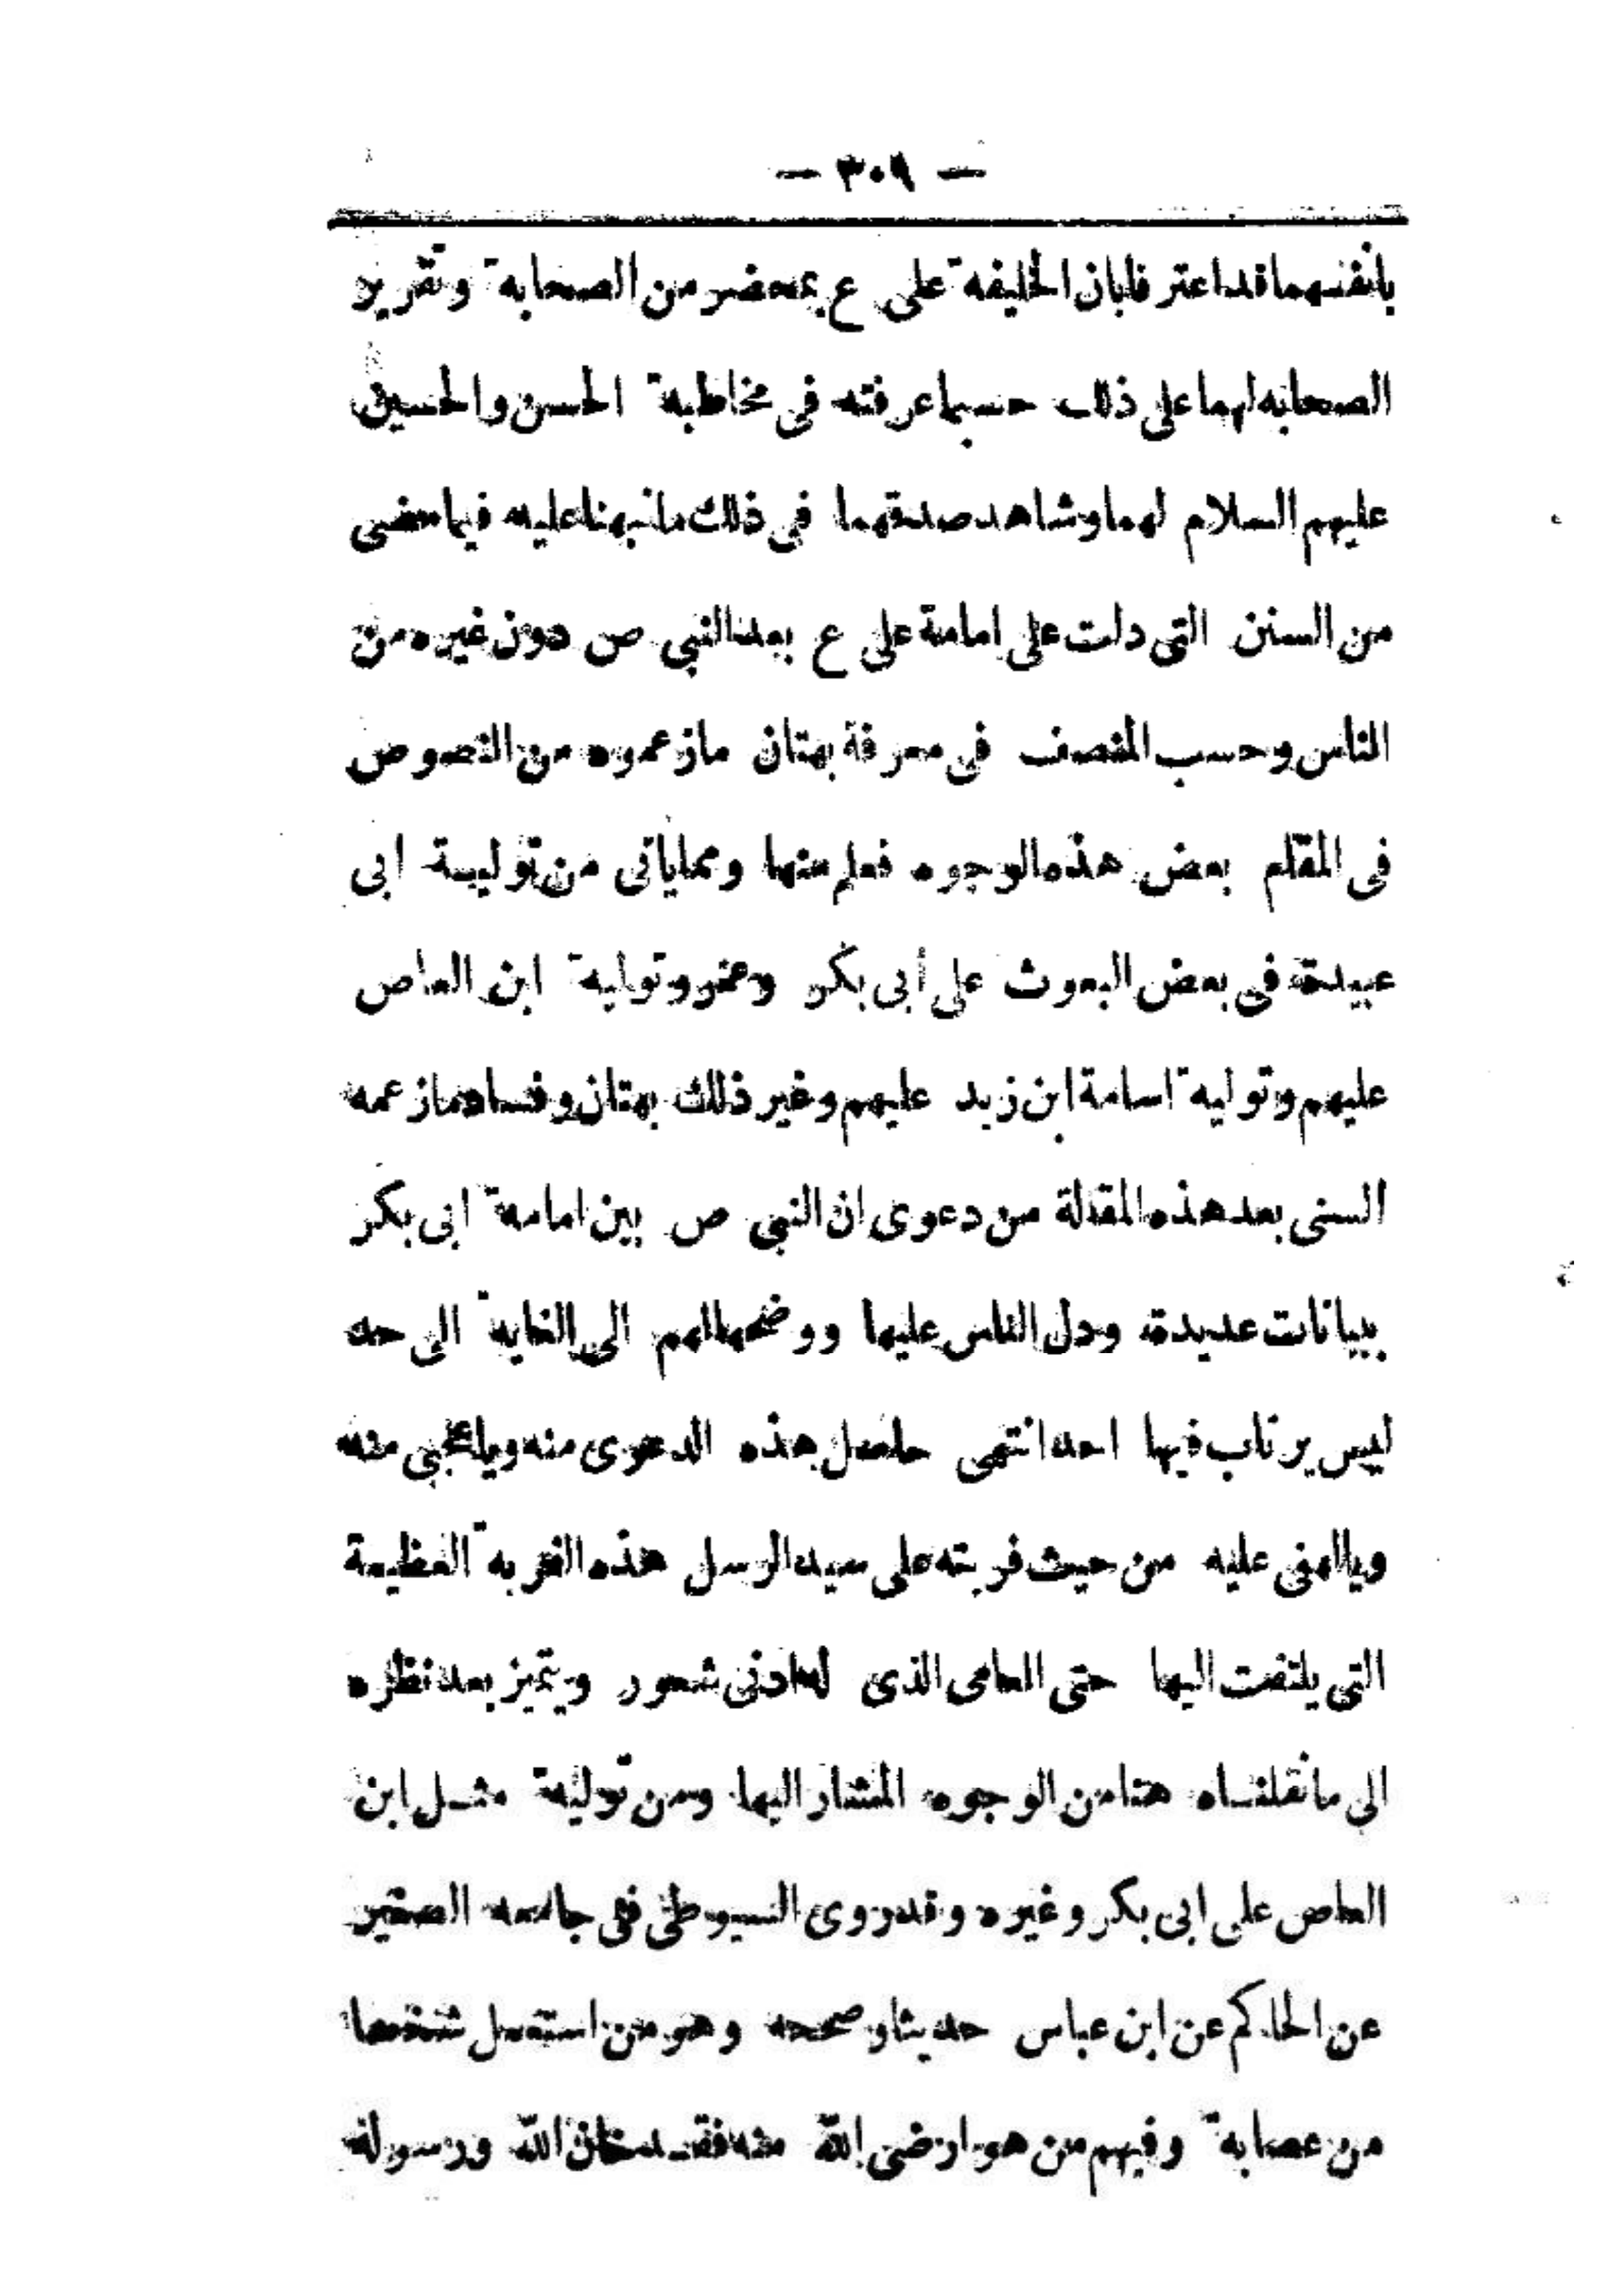 — ٣٠٩ —
بأنفسهما قد اعترفا بان الخليفة على ع بمحضر من الصحابة وتقرير
الصحابه لهما على ذلك حسبما عرفته فى مخاطبة الحسن والحسين
عليهم السلام لهما وشاهد صدقهما فى ذلك ما نبهنا عليه فيما مضى
من السنن التى دلت على امامة على ع بعد النبي ص دون غيره من
الناس وحسب المنصف فى معرفة بهتان ما زعموه من النصوص
فى المقام بعض هذه الوجوه فعلم منها ومما يأتى من تولية ابى
عبيدة فى بعض البعوث على أبى بكر وعمر وتولية ابن العاص
عليهم وتولية اسامة ابن زيد عليهم وغير ذلك بهتان وفساد ما زعمه
السنى بعد هذه المقالة من دعوى ان النبي ص بين امامة ابى بكر
ببيانات عديدة ودل الناس عليها ووضحها لهم الى الغاية الى حد
ليس يرتاب فيها احد انتهى حاصل هذه الدعوى منه ويا عجبى منه
ويا لهفى عليه من حيث فريته على سيد الرسل هذه الفريه العظيمة
التى يلتفت اليها حتى العامى الذى له ادنى شعور ويتميز بعد نظره
الى ما نقلنساه هنا من الوجوه المشار اليها ومن تولية مثل ابن
العاص على ابى بكر وغيره وقد روى السيوطى فى جامعه الصغير
عن الحاكم عن ابن عباس حديثا وصححه وهو من استعمل شخصا
من عصابة وفيهم من هو ارضى الله منه فقد خان الله ورسوله